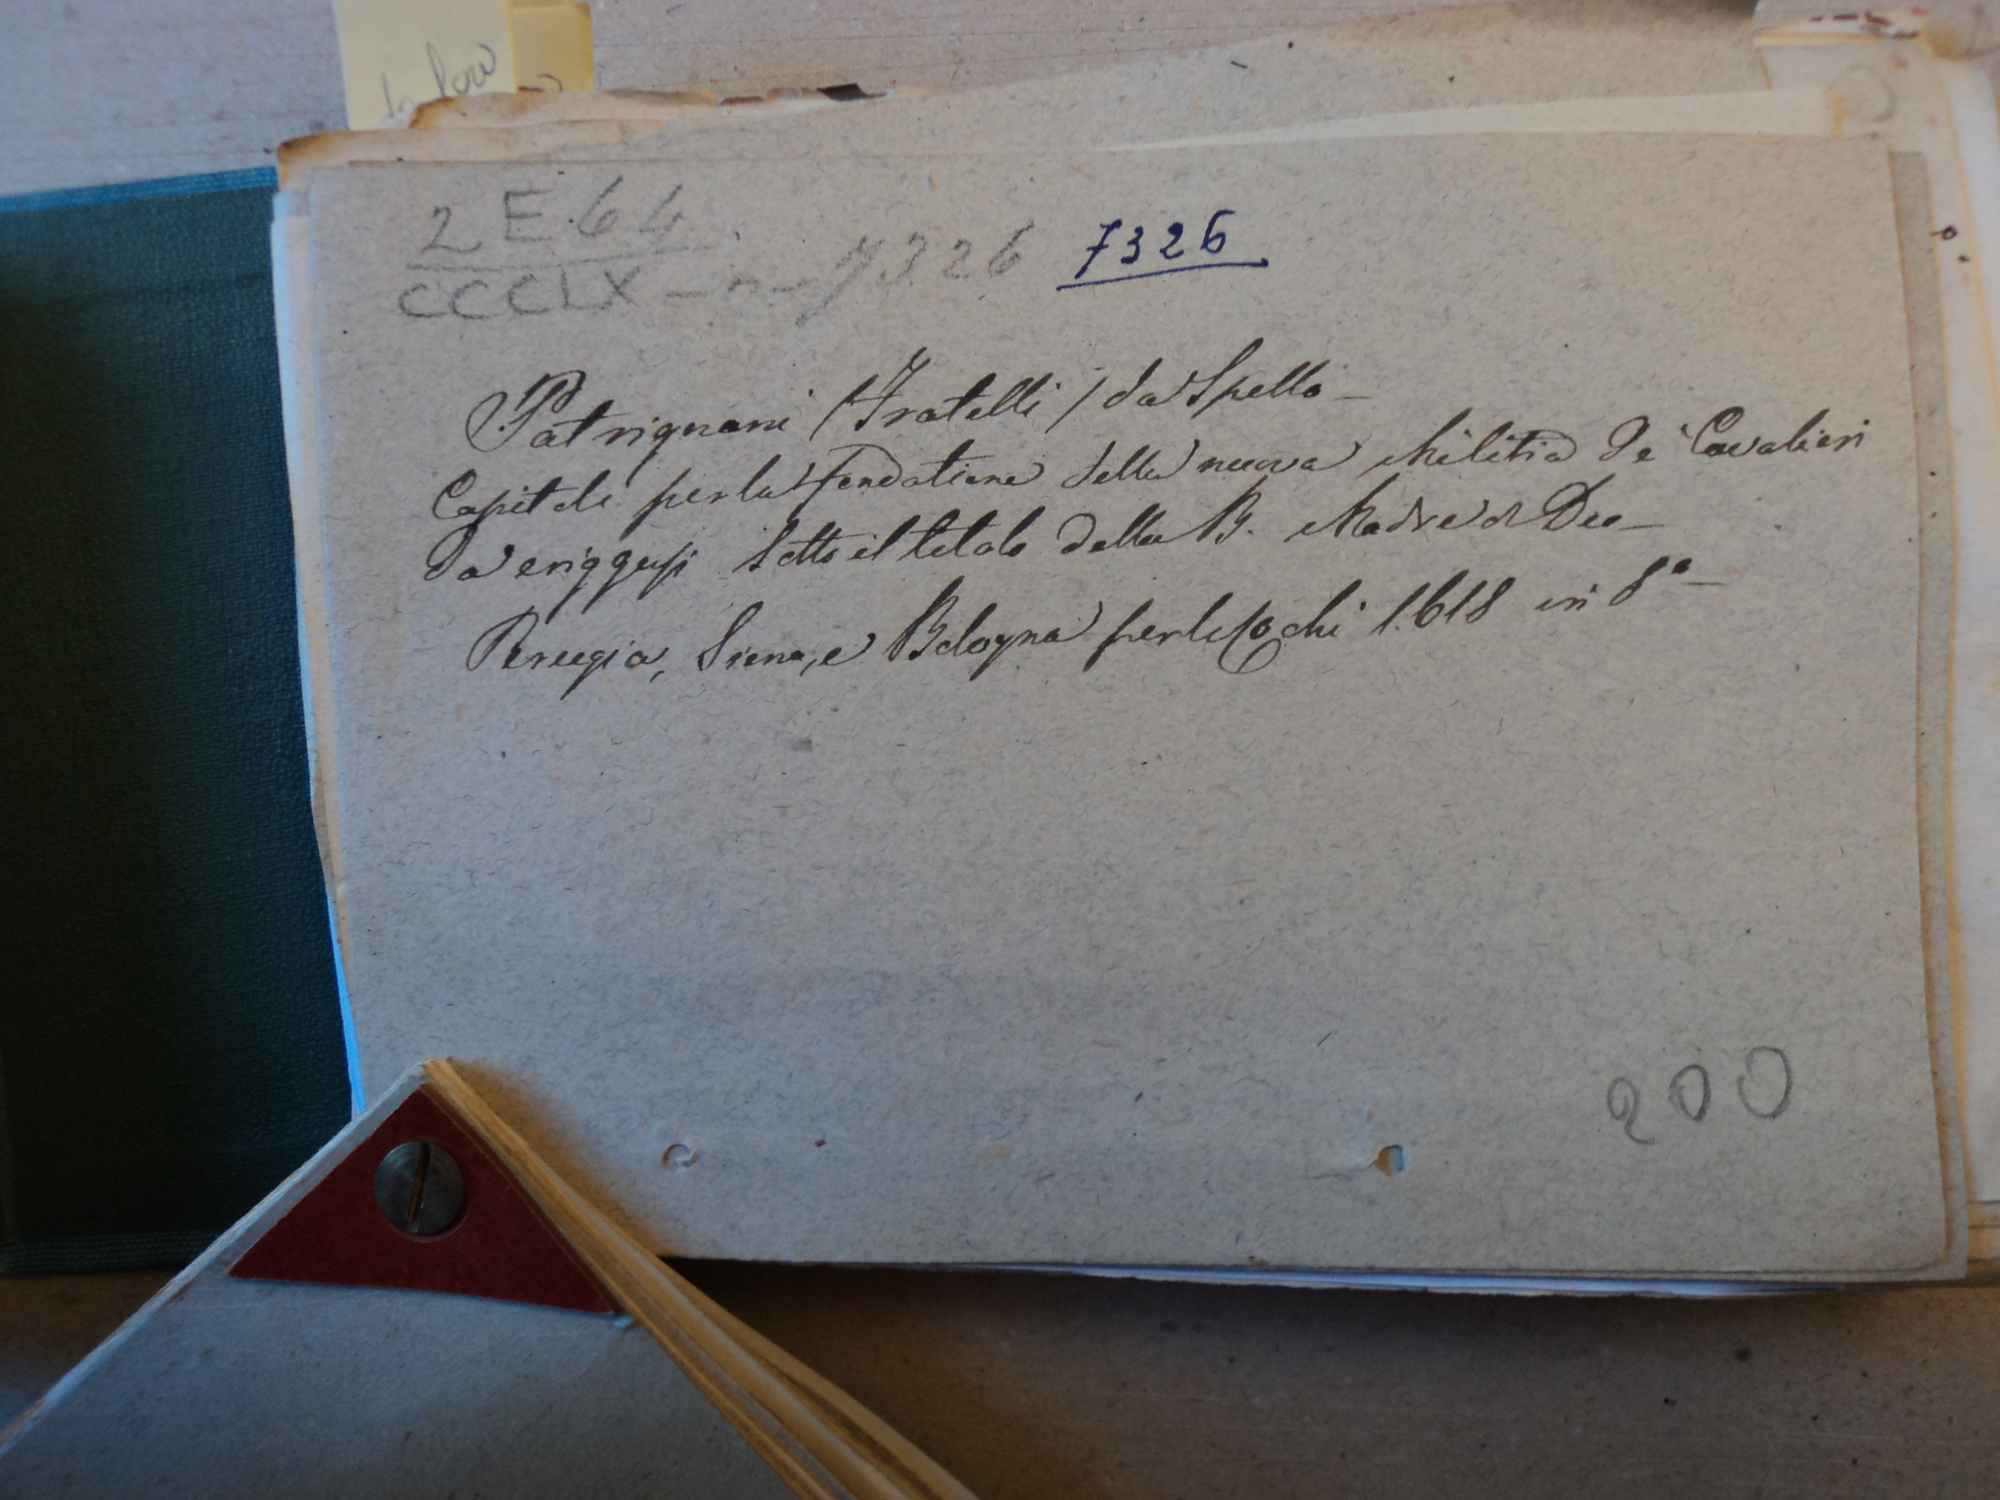 2 E. 64
CCCLX - n - 7326 7326
Patrignani (Fratelli) da Spello -
Capitoli per la fondatione della nuova Militia de' Cavalieri
da eriggersi sotto il titolo della B. Madre di Dio -
Perugia, Siena, e Bologna per li Cochi 1618 in 8° -
200